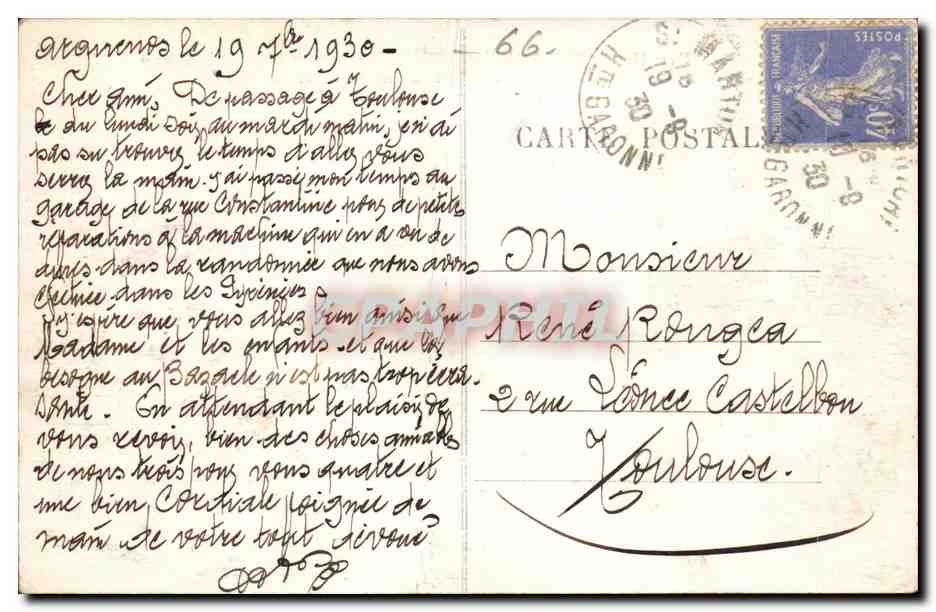 arguenos le 19 7bre 1930 -
Cher ami, De passage à Toulouse
du lundi soir au mardi matin, je n'ai
pas su trouver le temps d'aller vous
serrer la main. j'ai passé mon temps au
garage de la rue Constantine pour de petites
réparations à la machine qui en a vu de
dures dans la randonnée que nous avons
effectuée dans les Pyrénées.
J'espère que vous allez bien ainsi que
Madame et les enfants et que la
besogne au Bazacle n'est pas trop écra-
sante. En attendant le plaisir de
vous revoir, bien des choses aimables
de nous trois pour vous quatre et
une bien Cordiale poignée de
main de votre tout dévoué
- 66.
CARTE POSTALE
Hte GARONNE
19 -8
30
REPUBLIQUE FRANÇAISE
POSTES
40c
GARONNE
-8
30
Monsieur
René Rougea
2 rue Léonce Castelbou
Toulouse.
DELCAMPE